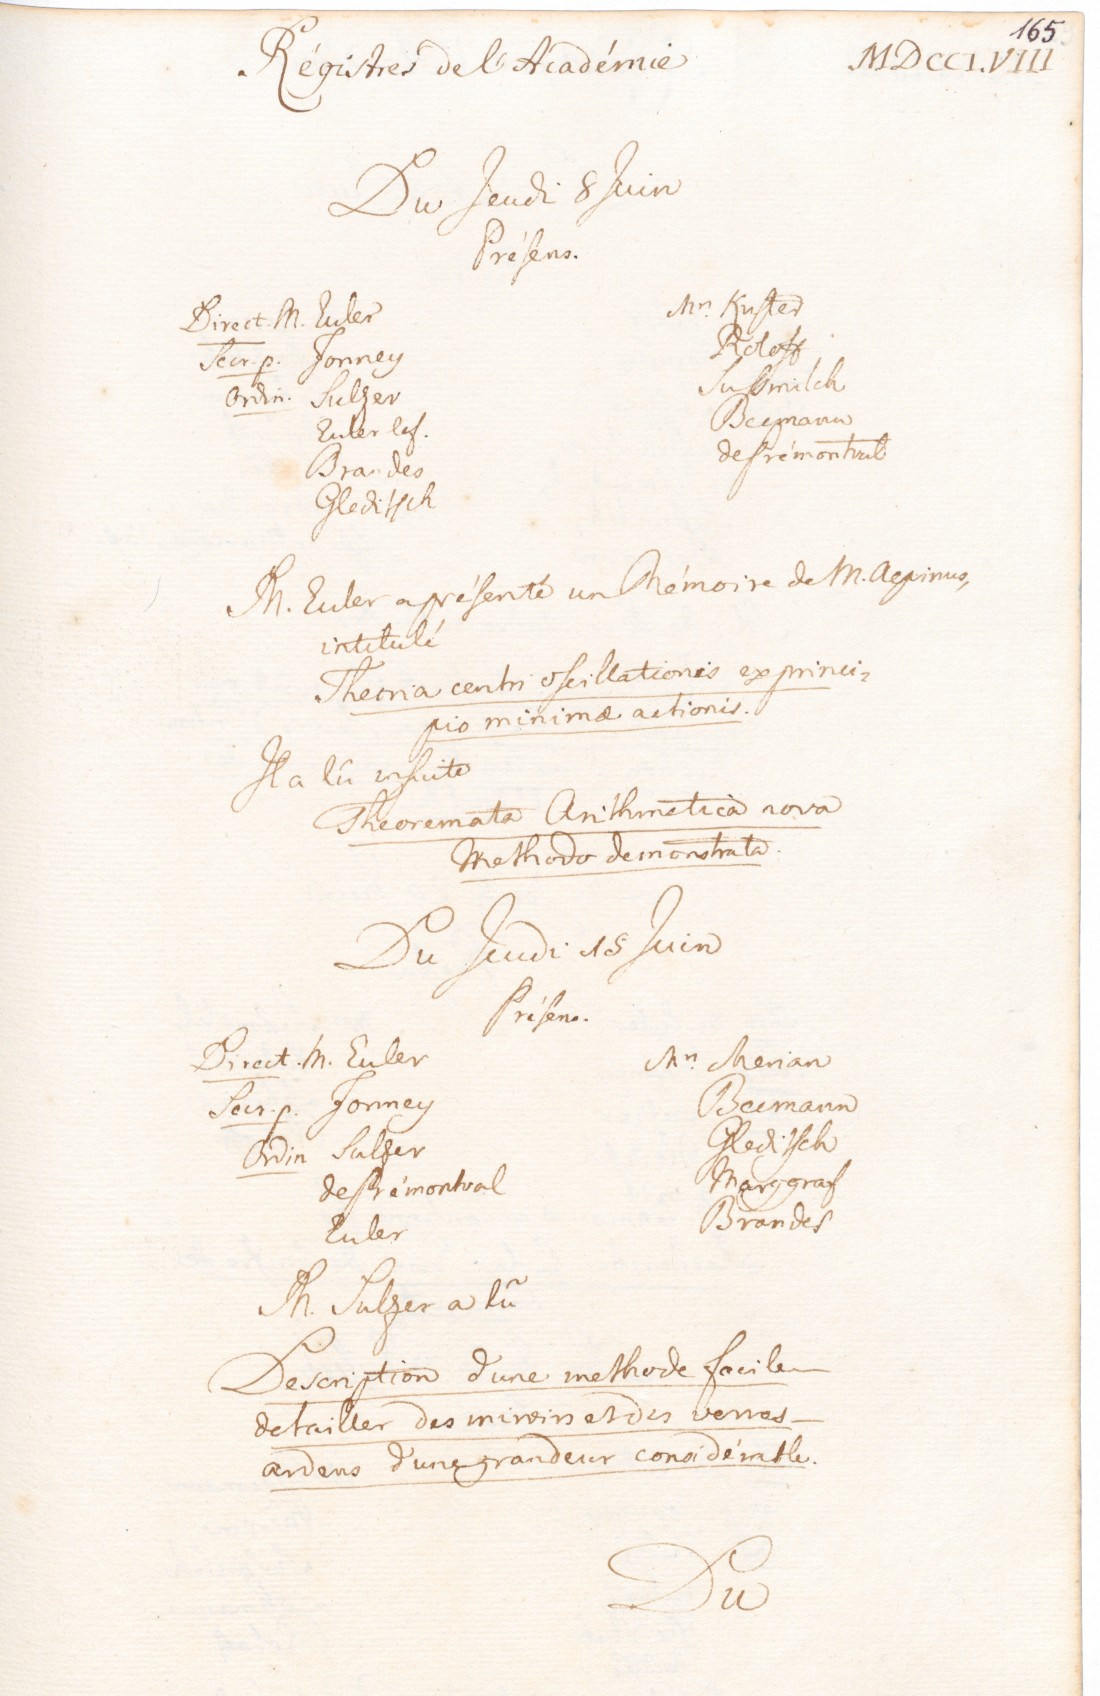 165
Régistres de l'Académie MDCCLVIII
Du Jeudi 8 Juin
Présens.
Direct. M. Euler
Secr. p. Formey
Ordin. Sulzer
Euler le f.
Brandes
Gleditsch
Mrs. Küster
Roloff
Sussmilch
Becmann
de Prémontval
M. Euler a présenté un Mémoire de M. Aepinus,
intitulé
Theoria centri oscillationis ex princi-
pio minimæ actionis.
Il a lû ensuite
Theoremata Arithmetica nova
Methodo demonstrata.
Du Jeudi 15 Juin
Présens.
Direct. M. Euler
Secr. p. Formey
Ordin Sulzer
de Prémontval
Euler
Mrs. Merian
Becmann
Gleditsch
Marggraf
Brandes
M. Sulzer a lû
Description d'une methode facile
de tailler des miroirs et des verres
ardens d'une grandeur considérable.
Du